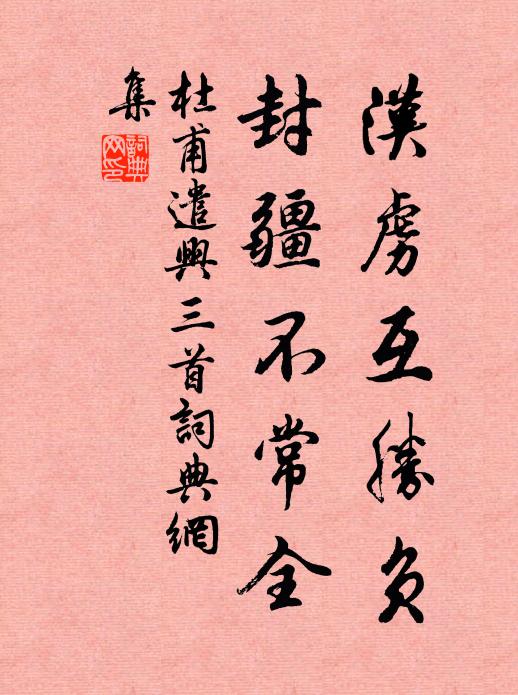 漢虜互勝負
封疆不常全
杜甫遣興三首詞典網
集
詞典網印